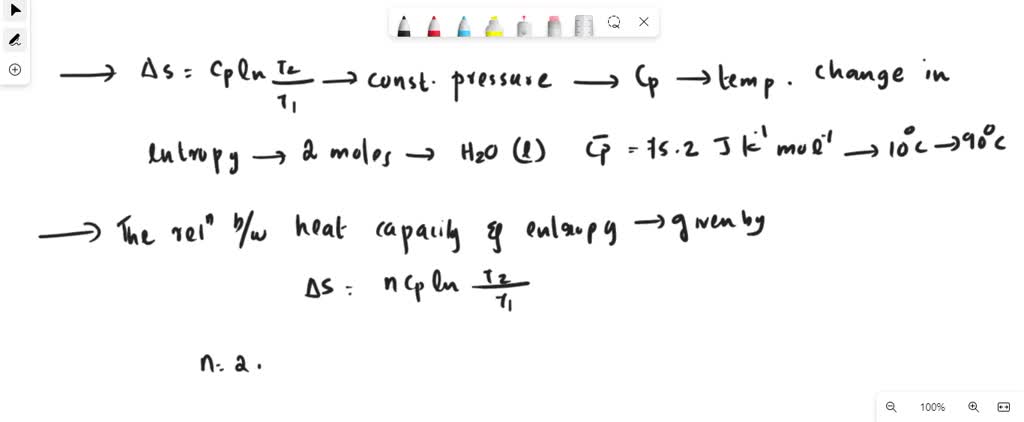 → Δs = Cp ln T2/T1 → const. pressure → Cp → temp. change in
entropy → 2 moles → H2O (l) C̄p = 75.2 J k⁻¹ mol⁻¹ → 10°c → 90°c
→ The relⁿ b/w heat capacity & entropy → given by
Δs = n Cp ln T2/T1
n = 2.
100%